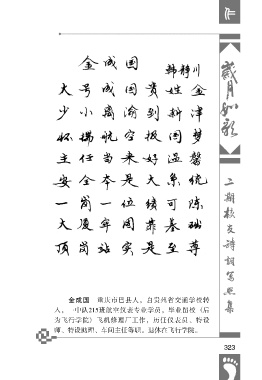 作
金成国
韩静川
大号成国贵姓金
少小离渝到科津
怀揣航空报国梦
主任当来好温馨
安全本是大系统
一岗一位缜可陈
大厦牢固靠基础
顶岗站实是至尊
金成国 重庆市巴县人。自贵州省交通学校转
入，一中队215班航空仪表专业学员。毕业留校（后
为飞行学院）飞机修理厂工作，历任仪表员、特设
师、特设助理、车间主任等职。退休在飞行学院。
岁月如歌
二期校友诗词写照集
323